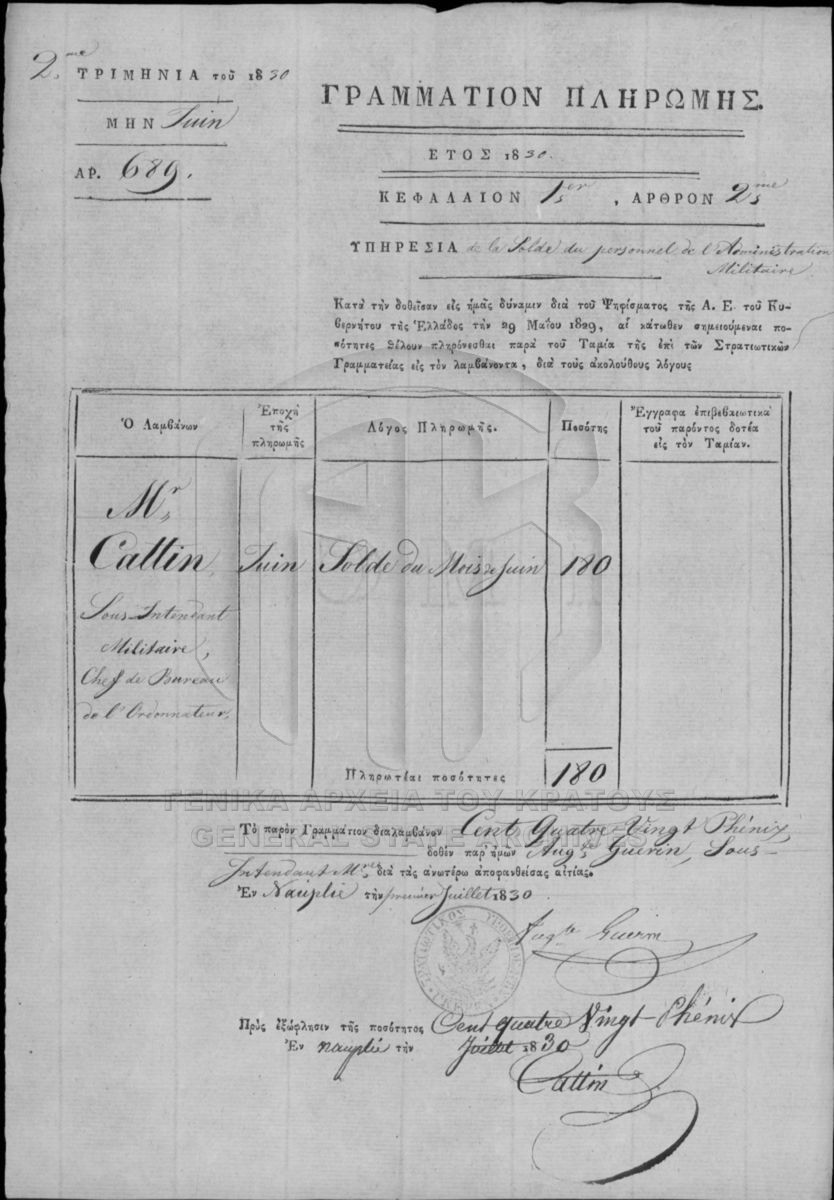 2.me ΤΡΙΜΗΝΙΑ τοῦ 1830
ΜΗΝ Juin
ΑΡ. 689.
ΓΡΑΜΜΑΤΙΟΝ ΠΛΗΡΩΜΗΣ.
ΕΤΟΣ 1830.
ΚΕΦΑΛΑΙΟΝ 1er, ΑΡΘΡΟΝ 2me
ΥΠΗΡΕΣΙΑ de la Solde du personnel de l'Administration
Militaire.
Κατὰ τὴν δοθεῖσαν εἰς ἡμᾶς δύναμιν διὰ τοῦ Ψηφίσματος τῆς Α. Ε. τοῦ Κυ-
βερνήτου τῆς Ἑλλάδος τὴν 29 Μαΐου 1829, αἱ κάτωθεν σημειούμεναι πο-
σότητες θέλουν πληρόνεσθαι παρὰ τοῦ Ταμία τῆς ἐπὶ τῶν Στρατιωτικῶν
Γραμματείας εἰς τὸν λαμβάνοντα, διὰ τοὺς ἀκολούθους λόγους
Ὁ Λαμβάνων
Ἐποχὴ
τῆς
πληρωμῆς
Λόγος Πληρωμῆς.
Ποσότης
Ἔγγραφα ἐπιβεβαιωτικὰ
τοῦ παρόντος δοτέα
εἰς τὸν Ταμίαν.
Mr
Cattin, Juin Solde du Mois de Juin 180
Sous-Intendant
Militaire,
Chef de Bureau
de l'Ordonnateur,
Πληρωτέαι ποσότητες 180
ΓΕΝΙΚΑ ΑΡΧΕΙΑ ΤΟΥ ΚΡΑΤΟΥΣ
GENERAL STATE ARCHIVES
Τὸ παρὸν Γραμμάτιον διαλαμβάνον Cent Quatre-Vingt Phénix,
δοθὲν παρ' ἡμῶν Augte Guerin, Sous-
Intendant Mre διὰ τὰς ἀνωτέρω ἀποφανθείσας αἰτίας.
Ἐν Nauplie τὴν premier Juillet 1830
Augte Guerin
Πρὸς ἐξώφλησιν τῆς ποσότητος Cent quatre Vingt Phénix
Ἐν nauplie τὴν Juillet 1830
Cattin